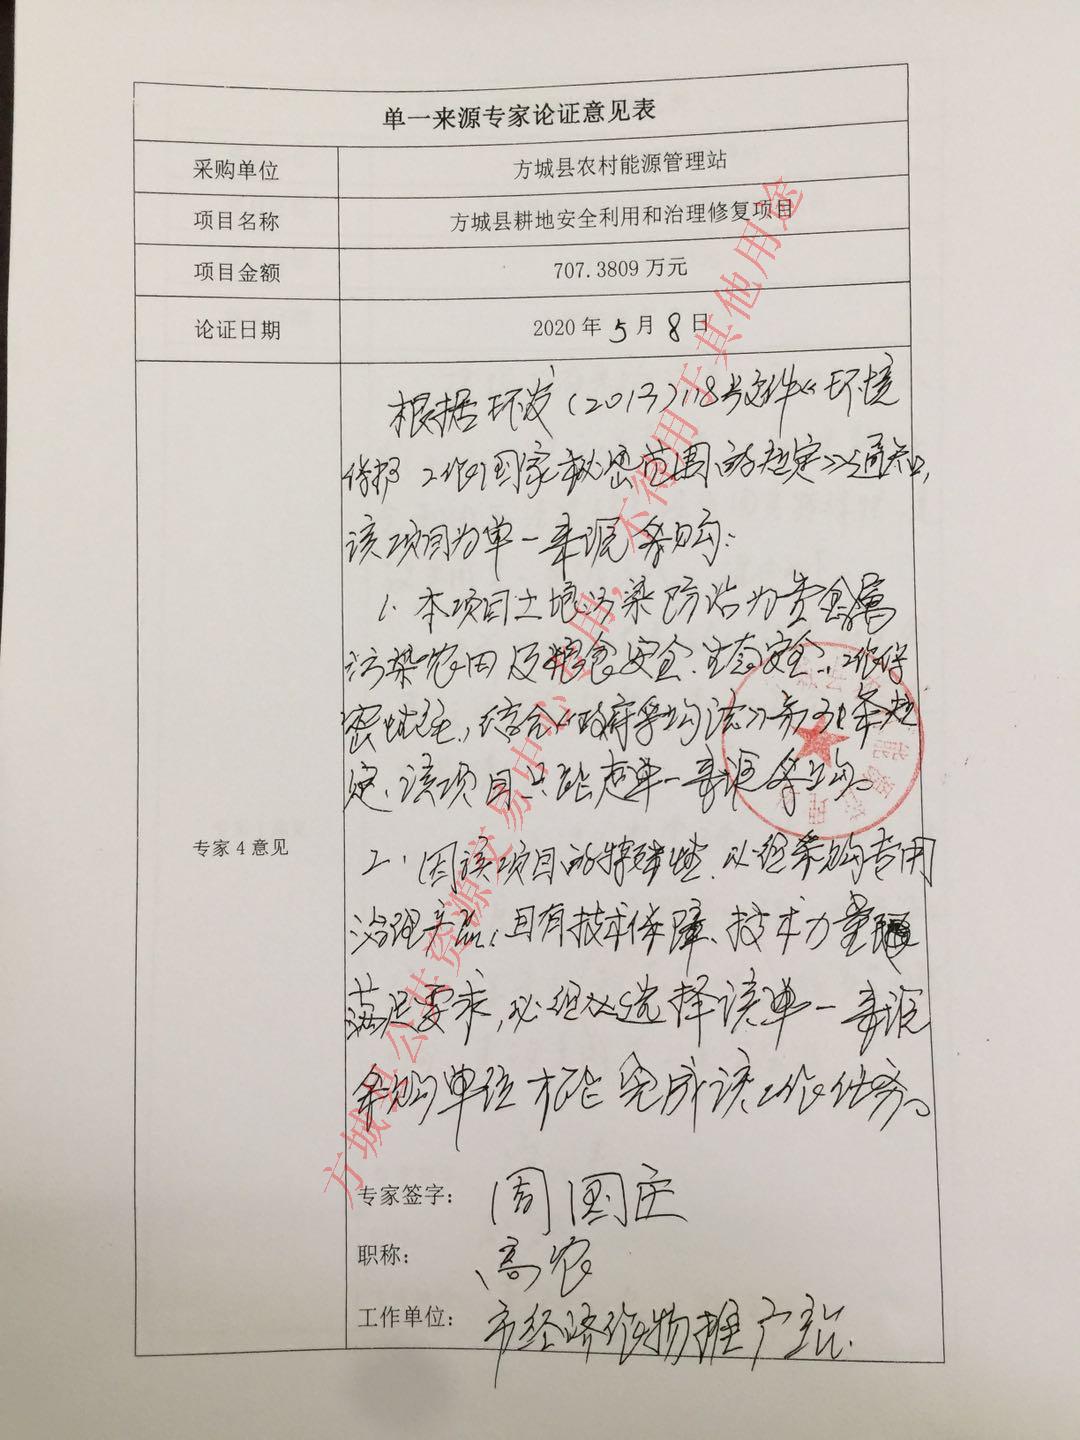 单一来源专家论证意见表
采购单位 方城县农村能源管理站
项目名称 方城县耕地安全利用和治理修复项目
项目金额 707.3809 万元
论证日期 2020 年 5 月 8 日
专家 4 意见
根据环发(2013)118号文件《环境
保护工作国家秘密范围的规定》通知,
该项目为单一来源采购:
1、本项目土地污染防治为重金属
污染农田及粮食安全、生态安全、工作保
密性强,结合《政府采购法》第31条规
定、该项目只能走单一来源采购。
2、因该项目的特殊性,以组采购专用
治理产品、且有技术保障、技术力量
满足要求,必须选择该单一来源
采购单位才能完成该工作任务。
专家签字: 周国庄
职称: 高农
工作单位: 市经济作物推广站.
方城县公共资源交易中心专用,不得用于其他用途